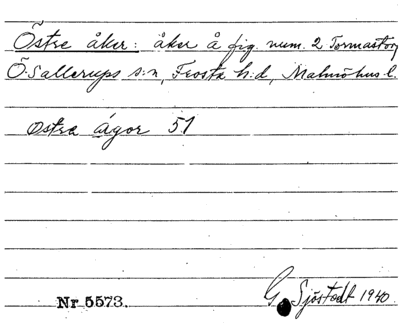 Östre åker: åker å fig. num. 2 Tormastorp
Ö. Sallerups s:n, Frosta h:d, Malmöhus l.
Östra ågor 51
G. Sjöstedt 1940.
Nr 5573.